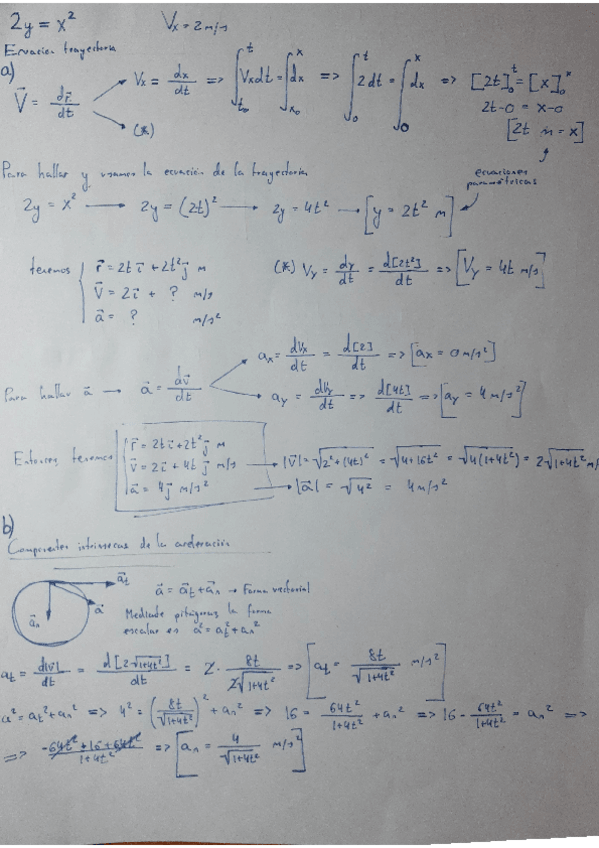 2y = x² Vx = 2 m/s
Ecuacion trayectoria
a)
V⃗ = dr⃗/dt Vx = dx/dt => ∫_{t₀}^{t} Vx dt = ∫_{x₀}^{x} dx => ∫_{0}^{t} 2dt = ∫_{0}^{x} dx => [2t]₀ᵗ = [x]₀ˣ
(*) 2t-0 = x-0
[2t m = x]
Para hallar y usamos la ecuación de la trayectoria ecuaciones parametricas
2y = x² → 2y = (2t)² → 2y = 4t² → [y = 2t² m]
tenemos { r⃗ = 2t i⃗ + 2t² j⃗ m (*) Vy = dy/dt = d[2t²]/dt => [Vy = 4t m/s]
V⃗ = 2i⃗ + ? m/s
a⃗ = ? m/s²
ax = dVx/dt = d[2]/dt => [ax = 0 m/s²]
Para hallar a⃗ → a⃗ = dv⃗/dt
ay = dVy/dt => d[4t]/dt => [ay = 4 m/s²]
Entonces tenemos r⃗ = 2t i⃗ + 2t² j⃗ m
v⃗ = 2i⃗ + 4t j⃗ m/s → |V⃗| = √2² + (4t)² = √4+16t² = √4(1+4t²) = 2√1+4t² m/
a⃗ = 4j⃗ m/s² → |a⃗| = √4² = 4 m/s²
b)
Componentes intrinsecas de la aceleración
a⃗t
a⃗
a⃗n
a⃗ = a⃗t + a⃗n → Forma vectorial
Mediante pitágoras la forma
escalar es a² = at² + an²
at = d|v|/dt = d[2√1+4t²]/dt = 2 · 8t/2√1+4t² => [at = 8t/√1+4t² m/s²]
a² = at² + an² => 4² = (8t/√1+4t²)² + an² => 16 = 64t²/1+4t² + an² => 16 - 64t²/1+4t² = an² =>
=> -64t² + 16 + 64t²/1+4t² => [an = 4/√1+4t² m/s²]